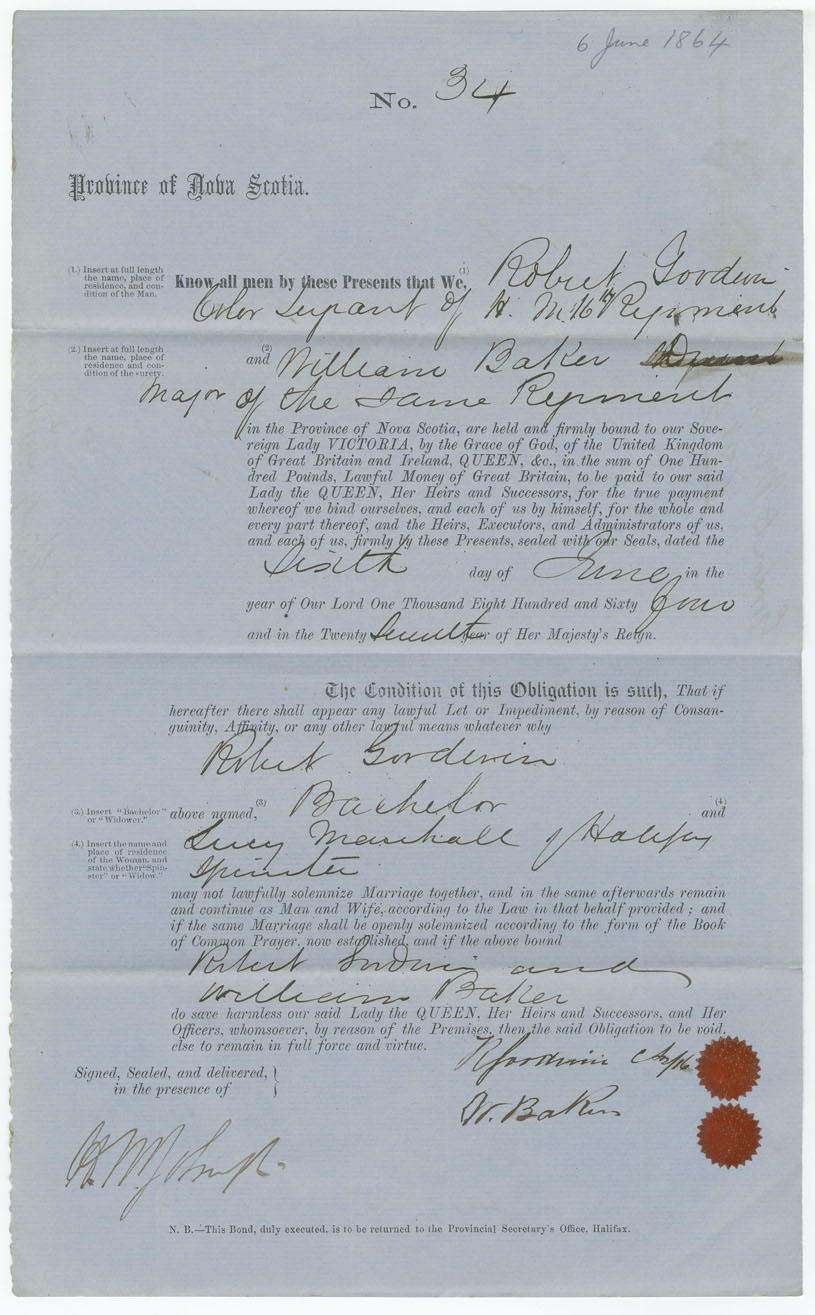 6 June 1864
No. 34
Province of Nova Scotia.
(1.) Insert at full length
the name, place of
residence, and con-
dition of the Man.
Know all men by these Presents that We,(1) Robert Goodwin
Color Serjeant of H. M. 16th Regiment
(2.) Insert at full length
the name, place of
residence and con-
dition of the surety.
and(2) William Baker
Major of the same Regiment
in the Province of Nova Scotia, are held and firmly bound to our Sove-
reign Lady VICTORIA, by the Grace of God, of the United Kingdom
of Great Britain and Ireland, QUEEN, &c., in the sum of One Hun-
dred Pounds, Lawful Money of Great Britain, to be paid to our said
Lady the QUEEN, Her Heirs and Successors, for the true payment
whereof we bind ourselves, and each of us by himself, for the whole and
every part thereof, and the Heirs, Executors, and Administrators of us,
and each of us, firmly by these Presents, sealed with our Seals, dated the
Sixth day of June in the
year of Our Lord One Thousand Eight Hundred and Sixty four
and in the Twenty Seventh year of Her Majesty's Reign.
The Condition of this Obligation is such, That if
hereafter there shall appear any lawful Let or Impediment, by reason of Consan-
guinity, Affinity, or any other lawful means whatever why
Robert Goodwin
(3.) Insert "Bachelor"
or "Widower."
above named,(3) Bachelor and(4)
(4.) Insert the name and
place of residence
of the Woman, and
state whether "Spin-
ster" or "Widow."
Lucy Marshall of Halifax
Spinster
may not lawfully solemnize Marriage together, and in the same afterwards remain
and continue as Man and Wife, according to the Law in that behalf provided; and
if the same Marriage shall be openly solemnized according to the form of the Book
of Common Prayer, now established, and if the above bound
Robert Goodwin and
William Baker
do save harmless our said Lady the QUEEN, Her Heirs and Successors, and Her
Officers, whomsoever, by reason of the Premises, then the said Obligation to be void,
else to remain in full force and virtue.
R Goodwin
Signed, Sealed, and delivered,
in the presence of
W. Baker
N. B.—This Bond, duly executed, is to be returned to the Provincial Secretary's Office, Halifax.